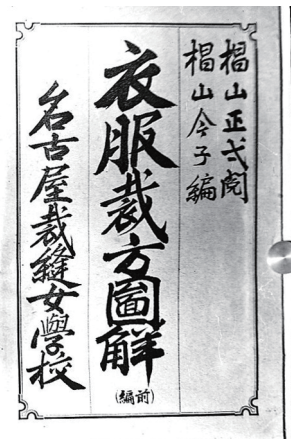 椙山正弌閲
椙山今子編
衣服裁方圖解
(前編)
名古屋裁縫女學校